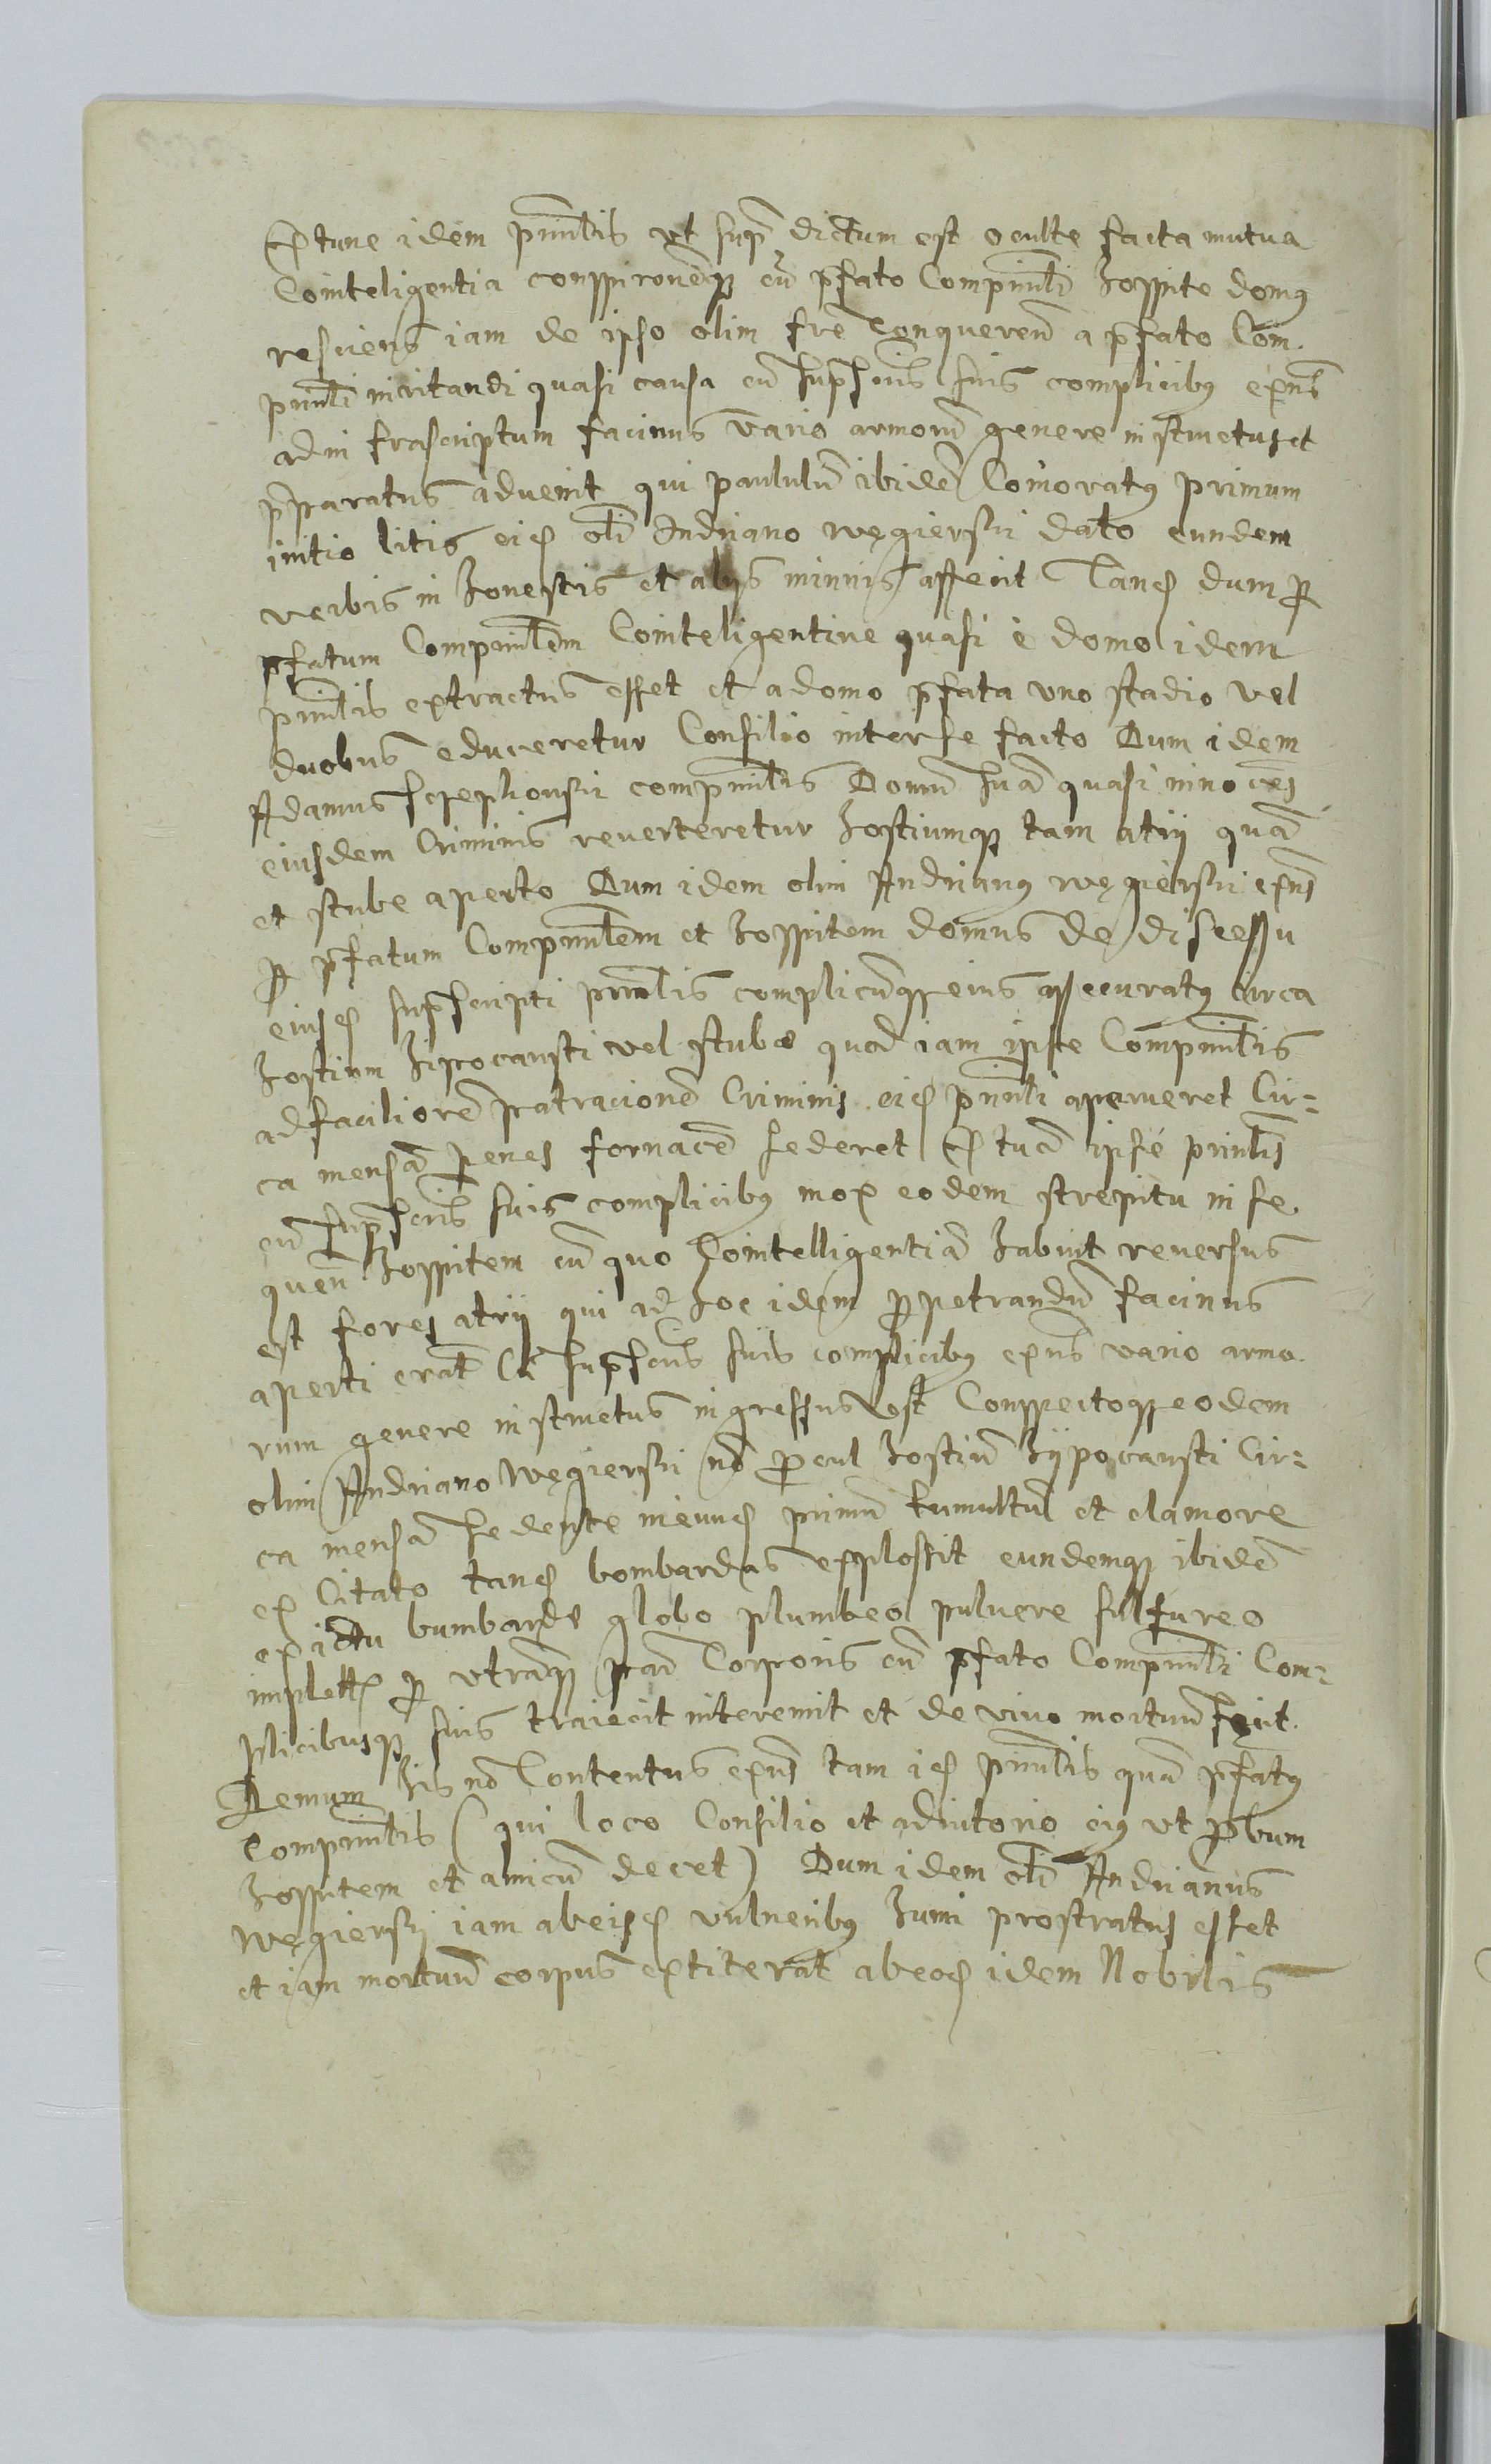 Et tunc idem prinlis vt sup dictum est oculte facta mutua
Cointeligentia conspironeqz cu pfato Comprinli hospite domq
resciens iam de ipso olim fre Conqueren a pfato Com
prinli incitandi quasi causa cu supscris suis complicibq exns
ad infrascriptum facinus vario armoru genere instructus et
pparatus aduenit qui paululu ibide Comoratq primum
initio litis eid oli Andriano węgierski dato eundem
verbis in honestis et alys minnis affecit Tand dum p
pfatum Comprinlem Cointeligentiue quasi e domo idem
prinlis extractus esset et a domo pfata vno stadio vel
duobus educeretur Consilio inter se facto Dum idem
Adamus comprinlis Domu sua quasi innoces
eiusdem Criminis reuerteretur hostiumqz tam atrii qua
et stube aperto Dum idem olim Andrianq węgierski exns
p pfatum Comprinlem et hospitem domus de discessu
eiusd supscripti prinlis complicuqz eius assecuratq circa
hostium hipocausti vel stube quod iam ipse Comprinlis
ad faciliore patracione Criminis eid prinli aperueret Cir=
ca mensa penes fornace sederet Et tuc ipse prinlis
cu supscris suis complicibq mox eodem strepitu in se
quen hospitem cu quo Cointelligentia habuit reuersus
est fores atrii qui ad hoc idem ppetrandu facinus
aperti erat Cu supscris suis complicibq exns vario armo
rum genere instructus ingressus est Conspectoqz eodem
olim Andriano Węgierski no pcul hostiu hypocausti Cir=
ca mensa sedente ineund primu tumultu et clamore
ex Citato tand bombardas explossit eundemqz ibide
ex ictu bumbarde globo plumbeo puluere sulfureo
implett p vtraqz par Corporis cu pfato Comprinli Com=
plicibusqz suis traiecit interemit et de viuo mortuu fecit
Demum his no Contentus exns tam id prinlis qua pfatq
Comprinlis (qui loco Consilio et adiutorio eiq vt pbum
hospitem et amicu decet) Dum idem oli Andrianus
Węgierski iam ab eisd vulneribq humi prostratus esset
et iam mortuu corpus extiterat ab eod idem Nobilis